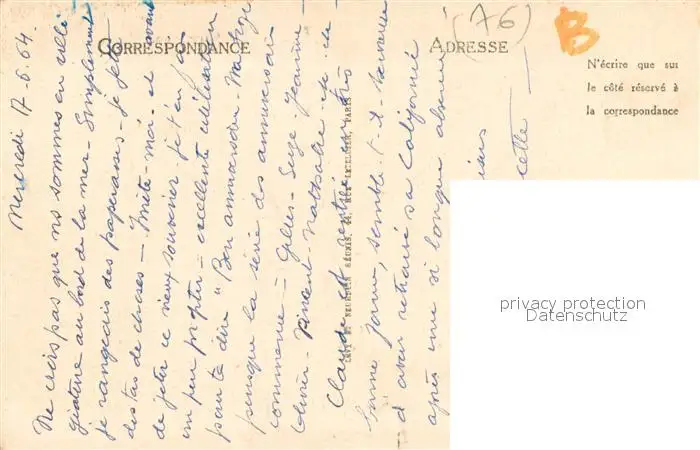 CORRESPONDANCE
ADRESSE
(76)
B
N'écrire que sur
le côté réservé à
la correspondance
Mercredi 17-6.64
Ne crois pas que ns sommes en villé-
giature au bord de la mer - Simplement
je rangeais des paperasses - je jetais
des tas de choses - Arrête-moi - et avant
de jeter ce vieux souvenir je t'en fais
un peu profiter - excellente utilisation
pour te dire "Bon anniversaire
puisque la série des anniversaires
commence - Gilles - Suze Jeanine -
Olivier - Vincent - Nathalie et ce -
Claude est rentré
bonne forme, semble-t-il - heureuse
d'avoir retrouvé sa Californie
après une si longue absence
LEVY ET NEURDEIN RÉUNIS, 44, RUE LETELLIER, PARIS
privacy protection
Datenschutz